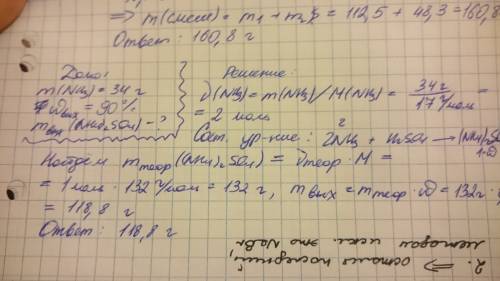 ⇒ m(смеси) = m₁ + m₂ = 112,5 + 48,3 = 160,8
Ответ: 160,8 г
Дано:
m(NH₃) = 34 г
ωвых = 90%
mвых (NH₄)₂SO₄ - ?
Решение:
ν(NH₃) = m(NH₃)/M(NH₃) = 34 г / 17 г/моль =
= 2 моль
2
Сост. ур-ние: 2NH₃ + H₂SO₄ → (NH₄)₂SO
Найдем mтеор ((NH₄)₂SO₄) = νтеор · M =
= 1 моль · 132 г/моль = 132 г, mвых = mтеор · ω = 132г ·
= 118,8 г
Ответ: 118,8 г
2. ⇒ остался последний,
методом искл. это NaBr